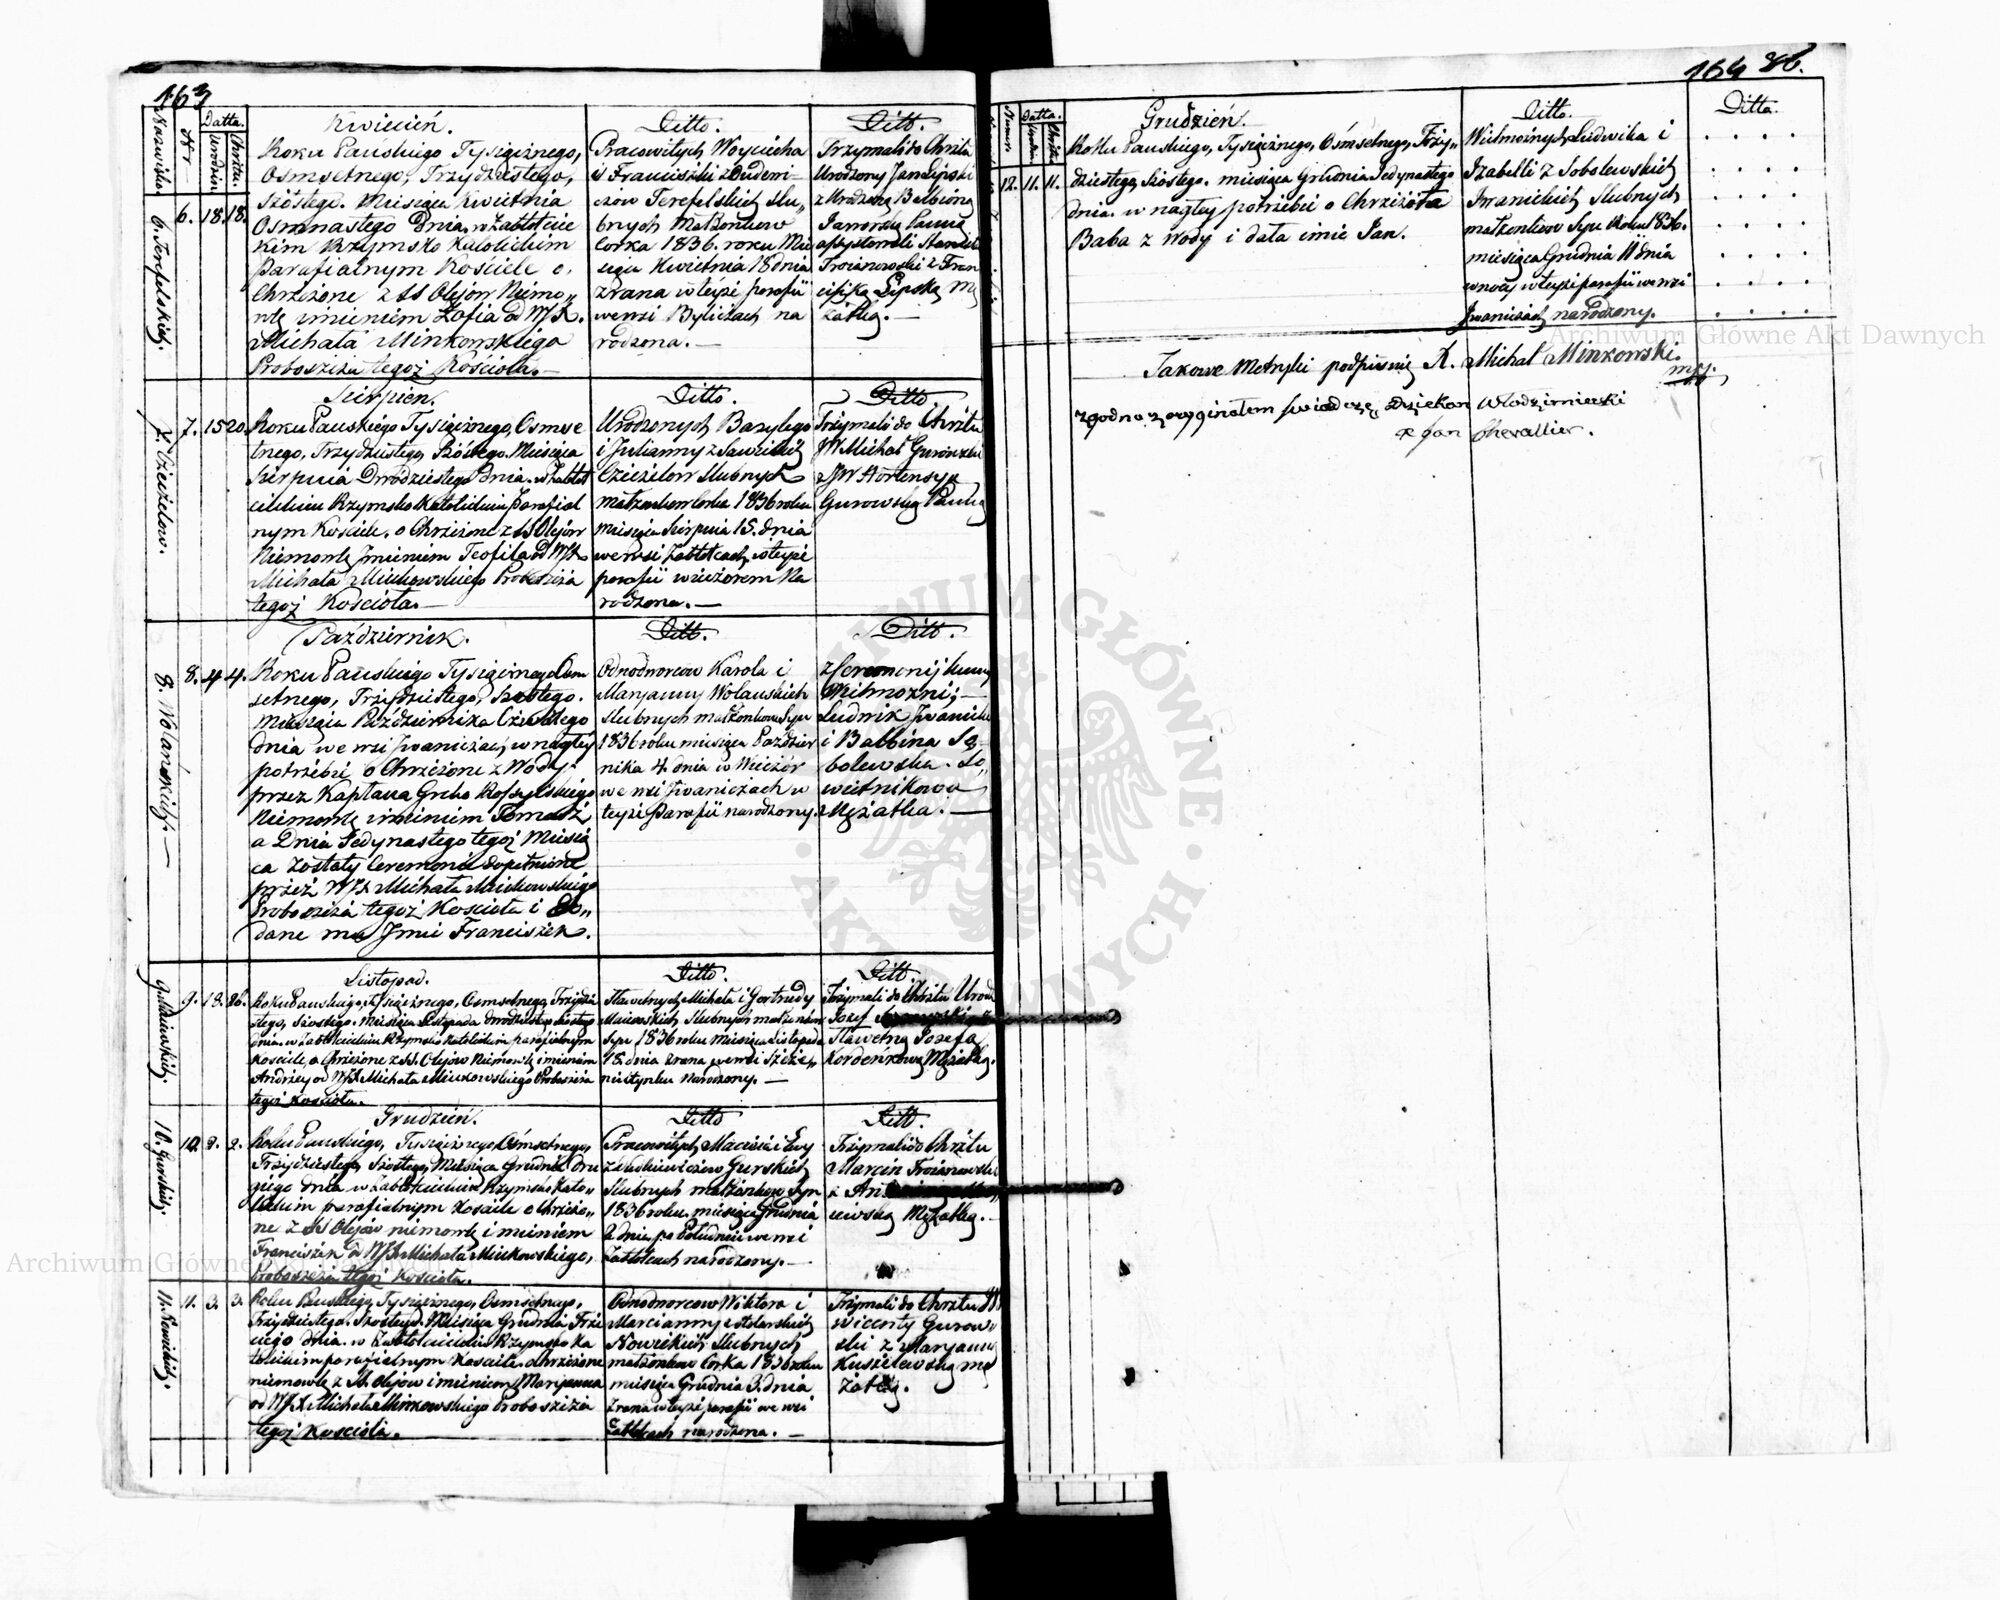 163
Nazwisko
Nr
Datta.
Urodzin
Chrztu.
Kwiecień.
Ditto.
Ditt.
6. Terefelskich.
6. 18. 18.
Roku Pańskiego Tysiącznego,
Osmsetnego, Trzydziestego,
Szóstego. Miesiąca Kwietnia
Osmnastego Dnia. w Zabłotcie
kim Rzymsko Katolickim
parafialnym Kościele o,
Chrzczone z SS Olejów Niemo„
wlę imieniem Zofia od WJX.
Michała Minkowskiego
Proboszcza tegoż Kościoła.—
Pracowitych Woyciecha
i Franciszki z Dudem-
czow Terefelskich Slu„
bnych Małżonkow
Corka 1836. roku Mie
siąca Kwietnia 18 dnia
z rana w teyże parafii
we wsi Byliczach na
rodzona.—
Trzymali do Chrztu
Urodzony Jan Lipski
z Urodzoną Balbiną
Jaworską Panną
assystowali Stanisł
Troianowski z Fran
ciszką Lipską Mę
żatką.—
Sierpien.
Ditto.
Ditto.
7. 15 20.
Roku Pańskiego Tysiącznego, Osmse
tnego, Trzydziestego, Szóstego Miesiąca
Sierpnia Dwodziestego Dnia. w Zabłot
cickim Rzymsko Katolickim Parafial
nym Kościele. o Chrzczone z SS Olejów
Niemowlę Imieniem Teofila od WJX.
Michała Minkowskiego Proboszcza
tegoż Kościoła.—
Urodzonych Bazylego
i Julianny z Sawickich
Czeczelow Slubnych
małżonkow Corka 1836 roku
Miesiąca Sierpnia 15. dnia
we wsi Zabłotcach w teyże
parafii wieczorem Na
rodzona.—
Trzymali do Chrztu
JW Michał Gurowski
z JW Hortensyą
Gurowską Panną
Październik.
Ditt.
Ditt.
8. Wolanskich.—
8. 4. 4.
Roku Pańskiego Tysiącznego Osm
setnego, Trzydziestego, Szostego.
Miesiąca Października Czwartego
dnia we wsi Iwaniczach w nagłey
potrzebie o Chrzczone z Wody
przez Kapłana Greko Rossyiskiego
Niemowlę imieniem Tomasz,
a Dnia Jedynastego tegoż Miesią
ca zostały Ceremonie dopełnione
przez WJX Michała Minkowskiego
Proboszcza tegoż Kościoła i Do„
dane ma Imie Franciszek.
Odnodworcow Karola i
Maryanny Wolanskich
Slubnych małżonkow Syn
1836 roku miesiąca Paździer
nika 4. dnia w Wieczór
we wsi Iwaniczach w
teyże Parafii narodzony.
z Ceremonij kumy
Wilmożni;—
Ludwik Iwanicki
i Balbina So-
bolewska. So„
wietnikowa
Mężatka.—
Listopad.
Ditto.
Ditt.
9. 18. 26.
Roku Pańskiego, Tysiącznego, Osmsetnego, Trzydzie
stego, Szostego. Miesiąca Listopada Dwodziestego Szostego
dnia. w Zabłotcickim Rzymsko Katolickim parafialnym
Kościele o Chrzczone z SS. Olejów Niemowlę imieniem
Andrzey od WJX Michała Minkowskiego Proboszcza
tegoż Kościoła.
Sławetnych Michała i Gertrudy
Slubnych małżonkow
Syn 1836 roku Miesiąca Listopada
18. dnia z rana we wsi
narodzony.—
Trzymali do Chrztu Urodz
Jozef
Sławetną Jozefą
Kordeńkową Mężatką.
Grudzień.
Ditto
Ditt.
10. Gurskich.
10. 2. 2.
Roku Pańskiego, Tysiącznego, Osmsetnego,
Trzydziestego, Szostego, Miesiąca Grudnia Dru
giego dnia w Zabłotcickim Rzymsko Kato„
lickim parafialnym Kościele o Chrzczo„
ne z SS Olejów niemowlę imieniem
Franciszek od WJX Michała Minkowskiego,
Proboszcza tegoż Kościoła.
Pracowitych Macieia i Ewy
Gurskich
Slubnych małżonkow Syn
1836 roku. miesiąca Grudnia
2 dnia po Południu we wsi
Zabłotcach narodzony.—
Trzymali do Chrztu
Marcin Troianowski
z
Mężatką.—
11. Nowickich.
11. 3. 3.
Roku Pańskiego, Tysiącznego, Osmsetnego,
Trzydziestego, Szostego, Miesiąca Grudnia Trze
ciego dnia. w Zabłotcickim Rzymsko Ka
tolickim parafialnym Kościele o chrzczone
niemowle z SS. Olejow imieniem Maryanna
od WJX Michała Minkowskiego Proboszcza
tegoż Kościoła.
Odnodworcow Wiktora i
Marcianny z Stolarskich
Nowickich Slubnych
małżonkow Corka 1836 roku
miesiąca Grudnia 3. dnia
z rana w teyże parafii we wsi
Zabłotcach narodzona.—
Trzymali do Chrztu
Wicenty Gurow
ski z Maryanną
Kuszelewską mę
żatką.
164 86.
Numer.
Datta.
Grudzień.
Ditto.
Ditta.
12. 11. 11.
Roku Pańskiego, Tysiącznego, Ósmsetnego, Trzy„
dziestego, Szóstego. miesiąca Grudnia Jedynastego
dnia. w nagłey potrzebie o Chrzciła
Baba z wody i data imie Jan.
Wielmożnych Ludwika i
Izabelli z Sobolewskich
Iwanickich Slubnych
małżonkow Syn Roku 1836.
miesiąca Grudnia 11 dnia
w nocy w teyże parafii we wsi
Iwaniczach narodzony.
Takowe Metryki podpisuię X. Michał Minkowski.
mpp.
zgodno z oryginałem swiadczę Dziekan Włodzimierski
X Jan Chevallier.
Archiwum Główne Akt Dawnych
Archiwum Główne Akt Dawnych
ARCHIWUM GŁÓWNE • AKT DAWNYCH •